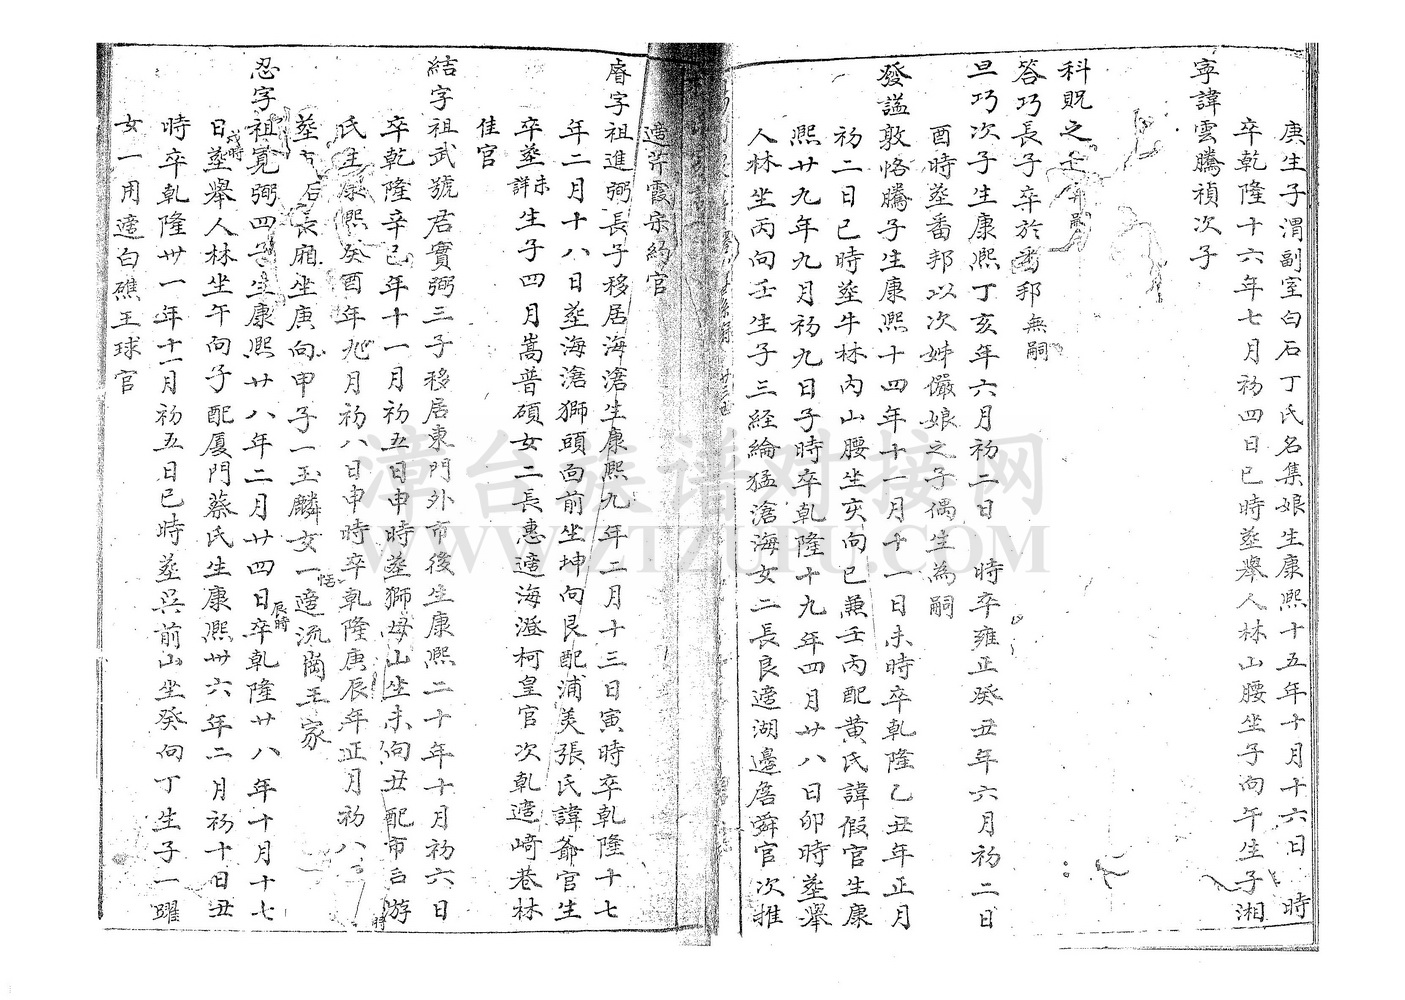 庚生子渭副室白石丁氏名集娘生康熙十五年十月十六日 時
卒乾隆十六年七月初四日巳時塟舉人林山腰坐子向午生子湘
寧諱雲騰禎次子
科貺之
答巧長子卒於番邦無嗣
旦巧次子生康熙丁亥年六月初二日 時卒雍正癸丑年六月初二日
酉時塟番邦以次姊儼娘之子偶生為嗣
發謚敦恪騰子生康熙十四年十一月十一日未時卒乾隆乙丑年正月
初二日巳時塟牛林內山腰坐亥向巳兼壬丙配黃氏諱假官生康
熙廿九年九月初九日子時卒乾隆十九年四月廿八日卯時塟舉
人林坐丙向壬生子三経綸猛滄海女二長良適湖邊詹舜官次推
適芹霞宋約官
睿字祖進弼長子移居海滄生康熙九年二月十三日寅時卒乾隆十七
年二月十八日塟海滄獅頭向前坐坤向艮配浦美張氏諱爺官生
卒塟未詳生子四月嵩普碩女二長惠適海澄柯皇官次乾適崎巷林
佳官
結字祖武號君實弼三子移居東門外市後生康熙二十年十月初六日
卒乾隆辛巳年十一月初五日申時塟獅母山坐未向丑配市后游
氏生康熙癸酉年九月初八日申時卒乾隆庚辰年正月初八 時
塟 后長廂坐庚向甲子一玉麟女一恬適流崗王家
忍字祖寬弼四子生康熙廿八年二月廿四日辰時卒乾隆廿八年十月十七
日戌時塟舉人林坐午向子配廈門蔡氏生康熙卅六年二月初十日丑
時卒乾隆卅一年十一月初五日巳時塟吳前山坐癸向丁生子一躍
女一用適白礁王球官
漳台族谱对接网
WWW.ZTZUPU.COM